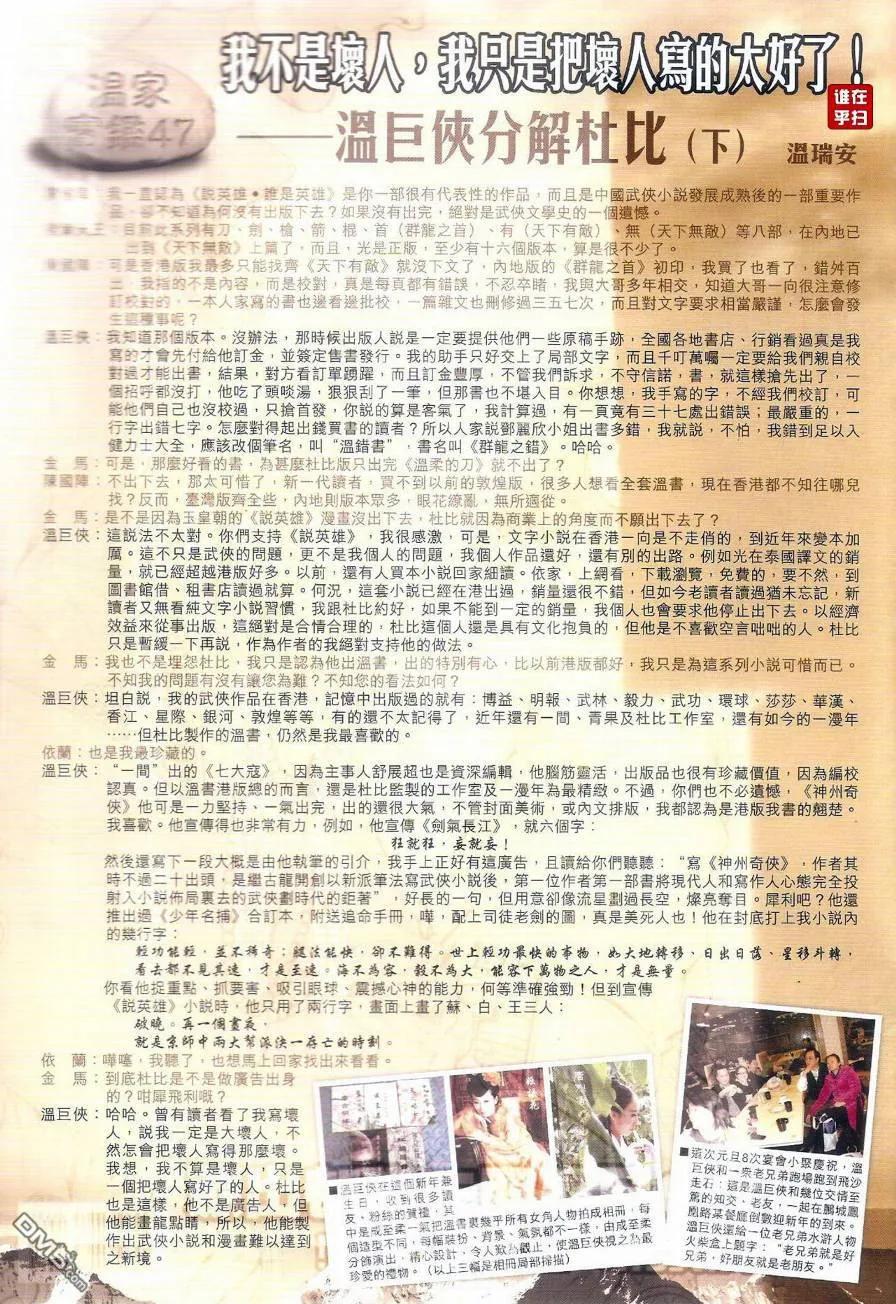 我不是壞人，我只是把壞人寫的太好了！
溫家
47
誰在
乎扫
——溫巨俠分解杜比（下） 溫瑞安
我一直認為《說英雄•誰是英雄》是你一部很有代表性的作品，而且是中國武俠小説發展成熟後的一部重要作
品，卻不知道為何沒有出版下去？如果沒有出完，絕對是武俠文學史的一個遺憾。
目前此系列有刀、劍、槍、箭、棍、首（群龍之首）、有（天下有敵）、無（天下無敵）等八部，在內地已
出到《天下無敵》上篇了，而且，光是正版，至少有十六個版本，算是很不少了。
陳國陣：可是香港版我最多只能找齊《天下有敵》就沒下文了，內地版的《群龍之首》初印，我買了也看了，錯舛百
出，我指的不是內容，而是校對，真是每頁都有錯誤，不忍卒睹，我與大哥多年相交，知道大哥一向很注意修
訂校對的，一本人家寫的書也邊看邊批校，一篇雜文也刪修過三五七次，而且對文字要求相當嚴謹，怎麼會發
生這種事呢？
溫巨俠：我知道那個版本。沒辦法，那時候出版人説是一定要提供他們一些原稿手跡，全國各地書店、行銷看過真是我
寫的才會先付給他訂金，並簽定售書發行。我的助手只好交上了局部文字，而且千叮萬囑一定要給我們親自校
對過才能出書，結果，對方看訂單踴躍，而且訂金豐厚，不管我們訴求，不守信諾，書，就這樣搶先出了，一
個招呼都沒打，他吃了頭啖湯，狠狠刮了一筆，但那書也不堪入目。你想想，我手寫的字，不經我們校訂，可
能他們自己也沒校過，只搶首發，你説的算是客氣了，我計算過，有一頁竟有三十七處出錯誤；最嚴重的，一
行字出錯七字。怎麼對得起出錢買書的讀者？所以人家説鄧麗欣小姐出書多錯，我就説，不怕，我錯到足以入
健力士大全，應該改個筆名，叫“溫錯書”，書名叫《群龍之錯》。哈哈。
金　馬：可是，那麼好看的書，為甚麼杜比版只出完《溫柔的刀》就不出了？
陳國陣：不出下去，那太可惜了，新一代讀者，買不到以前的敦煌版，很多人想看全套溫書，現在香港都不知往哪兒
找？反而，臺灣版齊全些，內地則版本眾多，眼花繚亂，無所適從。
金　馬：是不是因為玉皇朝的《說英雄》漫畫沒出下去，杜比就因為商業上的角度而不願出下去了？
溫巨俠：這說法不太對。你們支持《說英雄》，我很感激，可是，文字小説在香港一向是不走俏的，到近年來變本加
厲。這不只是武俠的問題，更不是我個人的問題，我個人作品還好，還有別的出路。例如光在泰國譯文的銷
量，就已經超越港版好多。以前，還有人買本小説回家細讀。依家，上網看，下載瀏覽，免費的，要不然，到
圖書館借、租書店讀過就算。何況，這套小説已經在港出過，銷量還很不錯，但如今老讀者讀過猶未忘記，新
讀者又無看純文字小説習慣，我跟杜比約好，如果不能到一定的銷量，我個人也會要求他停止出下去。以經濟
效益來從事出版，這絕對是合情合理的，杜比這個人還是具有文化抱負的，但他是不喜歡空言咄咄的人。杜比
只是暫緩一下再説，作為作者的我絕對支持他的做法。
金　馬：我也不是埋怨杜比，我只是認為他出溫書，出的特別有心，比以前港版都好，我只是為這系列小説可惜而已。
不知我的問題有沒有讓您為難？不知您的看法如何？
溫巨俠：坦白説，我的武俠作品在香港，記憶中出版過的就有：博益、明報、武林、毅力、武功、環球、莎莎、華漢、
香江、星際、銀河、敦煌等等，有的還不太記得了，近年還有一間、青果及杜比工作室，還有如今的一漫年
……但杜比製作的溫書，仍然是我最喜歡的。
依蘭：也是我最珍藏的。
溫巨俠：“一間”出的《七大寇》，因為主事人舒展超也是資深編輯，他腦筋靈活，出版品也很有珍藏價值，因為編校
認真。但以溫書港版總的而言，還是杜比監製的工作室及一漫年為最精緻。不過，你們也不必遺憾，《神州奇
俠》他可是一力堅持、一氣出完，出的還很大氣，不管封面美術，或內文排版，我都認為是港版我書的翹楚。
我喜歡。他宣傳得也非常有力，例如，他宣傳《劍氣長江》，就六個字：
狂就狂，妄就妄！
然後還寫下一段大概是由他執筆的引介，我手上正好有這廣告，且讀給你們聽聽：“寫《神州奇俠》，作者其
時不過二十出頭，是繼古龍開創以新派筆法寫武俠小説後，第一位作者第一部書將現代人和寫作人心態完全投
射入小説佈局裏去的武俠劃時代的鉅著”，好長的一句，但用意卻像流星劃過長空，燦亮奪目。犀利吧？他還
推出過《少年名捕》合訂本，附送追命手冊，嘩，配上司徒老劍的圖，真是美死人也！他在封底打上我小説內
的幾行字：
輕功能輕，並不稀奇；腿法能快，卻不難得。世上輕功最快的事物，如大地轉移、日出日落、星移斗轉，
看去都不見其速，才是至速。海不為容，穀不為大，能容下萬物之人，才是無量。
你看他捉重點、抓要害、吸引眼球、震撼心神的能力，何等準確強勁！但到宣傳
《說英雄》小説時，他只用了兩行字，畫面上畫了蘇、白、王三人：
破曉。再一個晝夜，
就是京師中兩大幫派決一存亡的時刻。
依　蘭：嘩噻，我聽了，也想馬上回家找出來看看。
金　馬：到底杜比是不是做廣告出身
的？咁犀飛利嘅？
溫巨俠：哈哈。曾有讀者看了我寫壞
人，説我一定是大壞人，不
然怎會把壞人寫得那麼壞。
我想，我不算是壞人，只是
一個把壞人寫好了的人。杜比
也是這樣，他不是廣告人，但
他能畫龍點睛，所以，他能製
作出武俠小説和漫畫難以達到
之新境。
■溫巨俠在這個新年兼
生日，收到很多讀
友、粉絲的賀禮，其
中是成至柔一氣把溫書裏幾乎所有女角人物拍成相冊，每
個造型不同，每幅裝扮、背景、氣氛都不一樣，由成至柔
分飾演出，精心設計，令人歎為觀止，使溫巨俠視之為最
珍愛的禮物。（以上三幅是相冊局部掃描）
■這次元旦8次宴會小聚慶祝，溫
巨俠和一衆老兄弟跑場跑到飛沙
走石：這是溫巨俠和幾位交情至
篤的知交、老友，一起在鵬城鳳
凰路某餐廳倒數迎新年的到來。
溫巨俠還給一位老兄弟水滸人物
火柴盒上題字：“老兄弟就是好
兄弟，好朋友就是老朋友。”
DM5.com